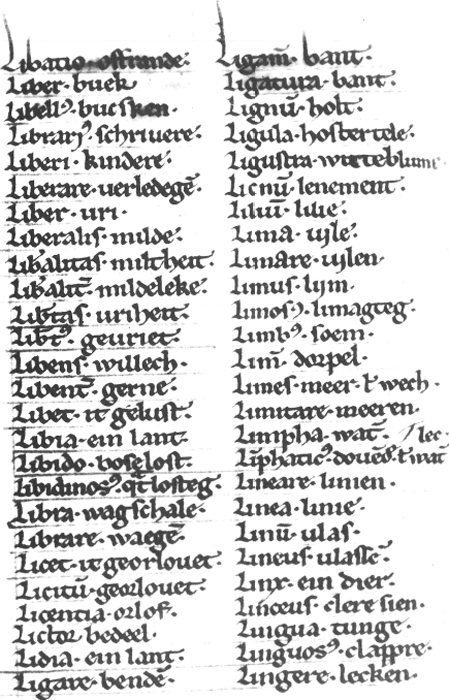 Libatio · offrande ·
Liber · buek
Libell⁹ · bucsken ·
Librari⁹ · schriuere ·
Liberi · kindere ·
Liberare · uerledegē ·
Liber · uri ·
Liberalis · milde ·
Lib̾alitas · miltheit ·
Lib̾alit̄ · mildeleke ·
Lib̾tas · uriheit ·
Lib̾t⁹ · geuriet ·
Libens · willech ·
Libent̄ · gerne ·
Libet · it gelust ·
Libia · ein lant ·
Libido · bose lost ·
Libidinos⁹ · losteg ·
Libra · wagschale ·
Librare · waegē ·
Licet · it georlouet ·
Licitū · georlouet ·
Licentia · orlof ·
Lictor · bedeel ·
Lidia · ein lant ·
Ligare · bende ·
Ligam̄ · bant ·
Ligatura · bant ·
Lignū · holt ·
Ligula · hosbertele ·
Ligustra ·
Licnū · lenement ·
Liliū · lilie ·
Lima · uile ·
Limare · uilen ·
Limus · lim ·
Limos⁹ · limagteg ·
Limb⁹ · soem ·
Lim̄ · dorpel ·
Limes · meer · ł wech ·
Limitare · meeren ·
Limpha · wat̄ ·
Liphatic⁹ ·
Lineare · linien ·
Linea · linie ·
Linū · ulas ·
Lineus · ulassē ·
Linx · ein dier ·
Linceus · clere sien ·
Lingua · tunge ·
Linguos⁹ · clappre ·
Lingere · lecken ·